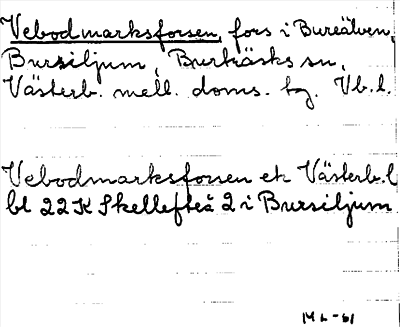 Vebodmarksforsen, fors i Bureälven,
Bursiljum, Burträsks sn,
Västerb. mell. doms. tg. Vb.l.
Vebodmarksforsen ek Västerb.l
bl 22K Skellefteå 2 i Bursiljum